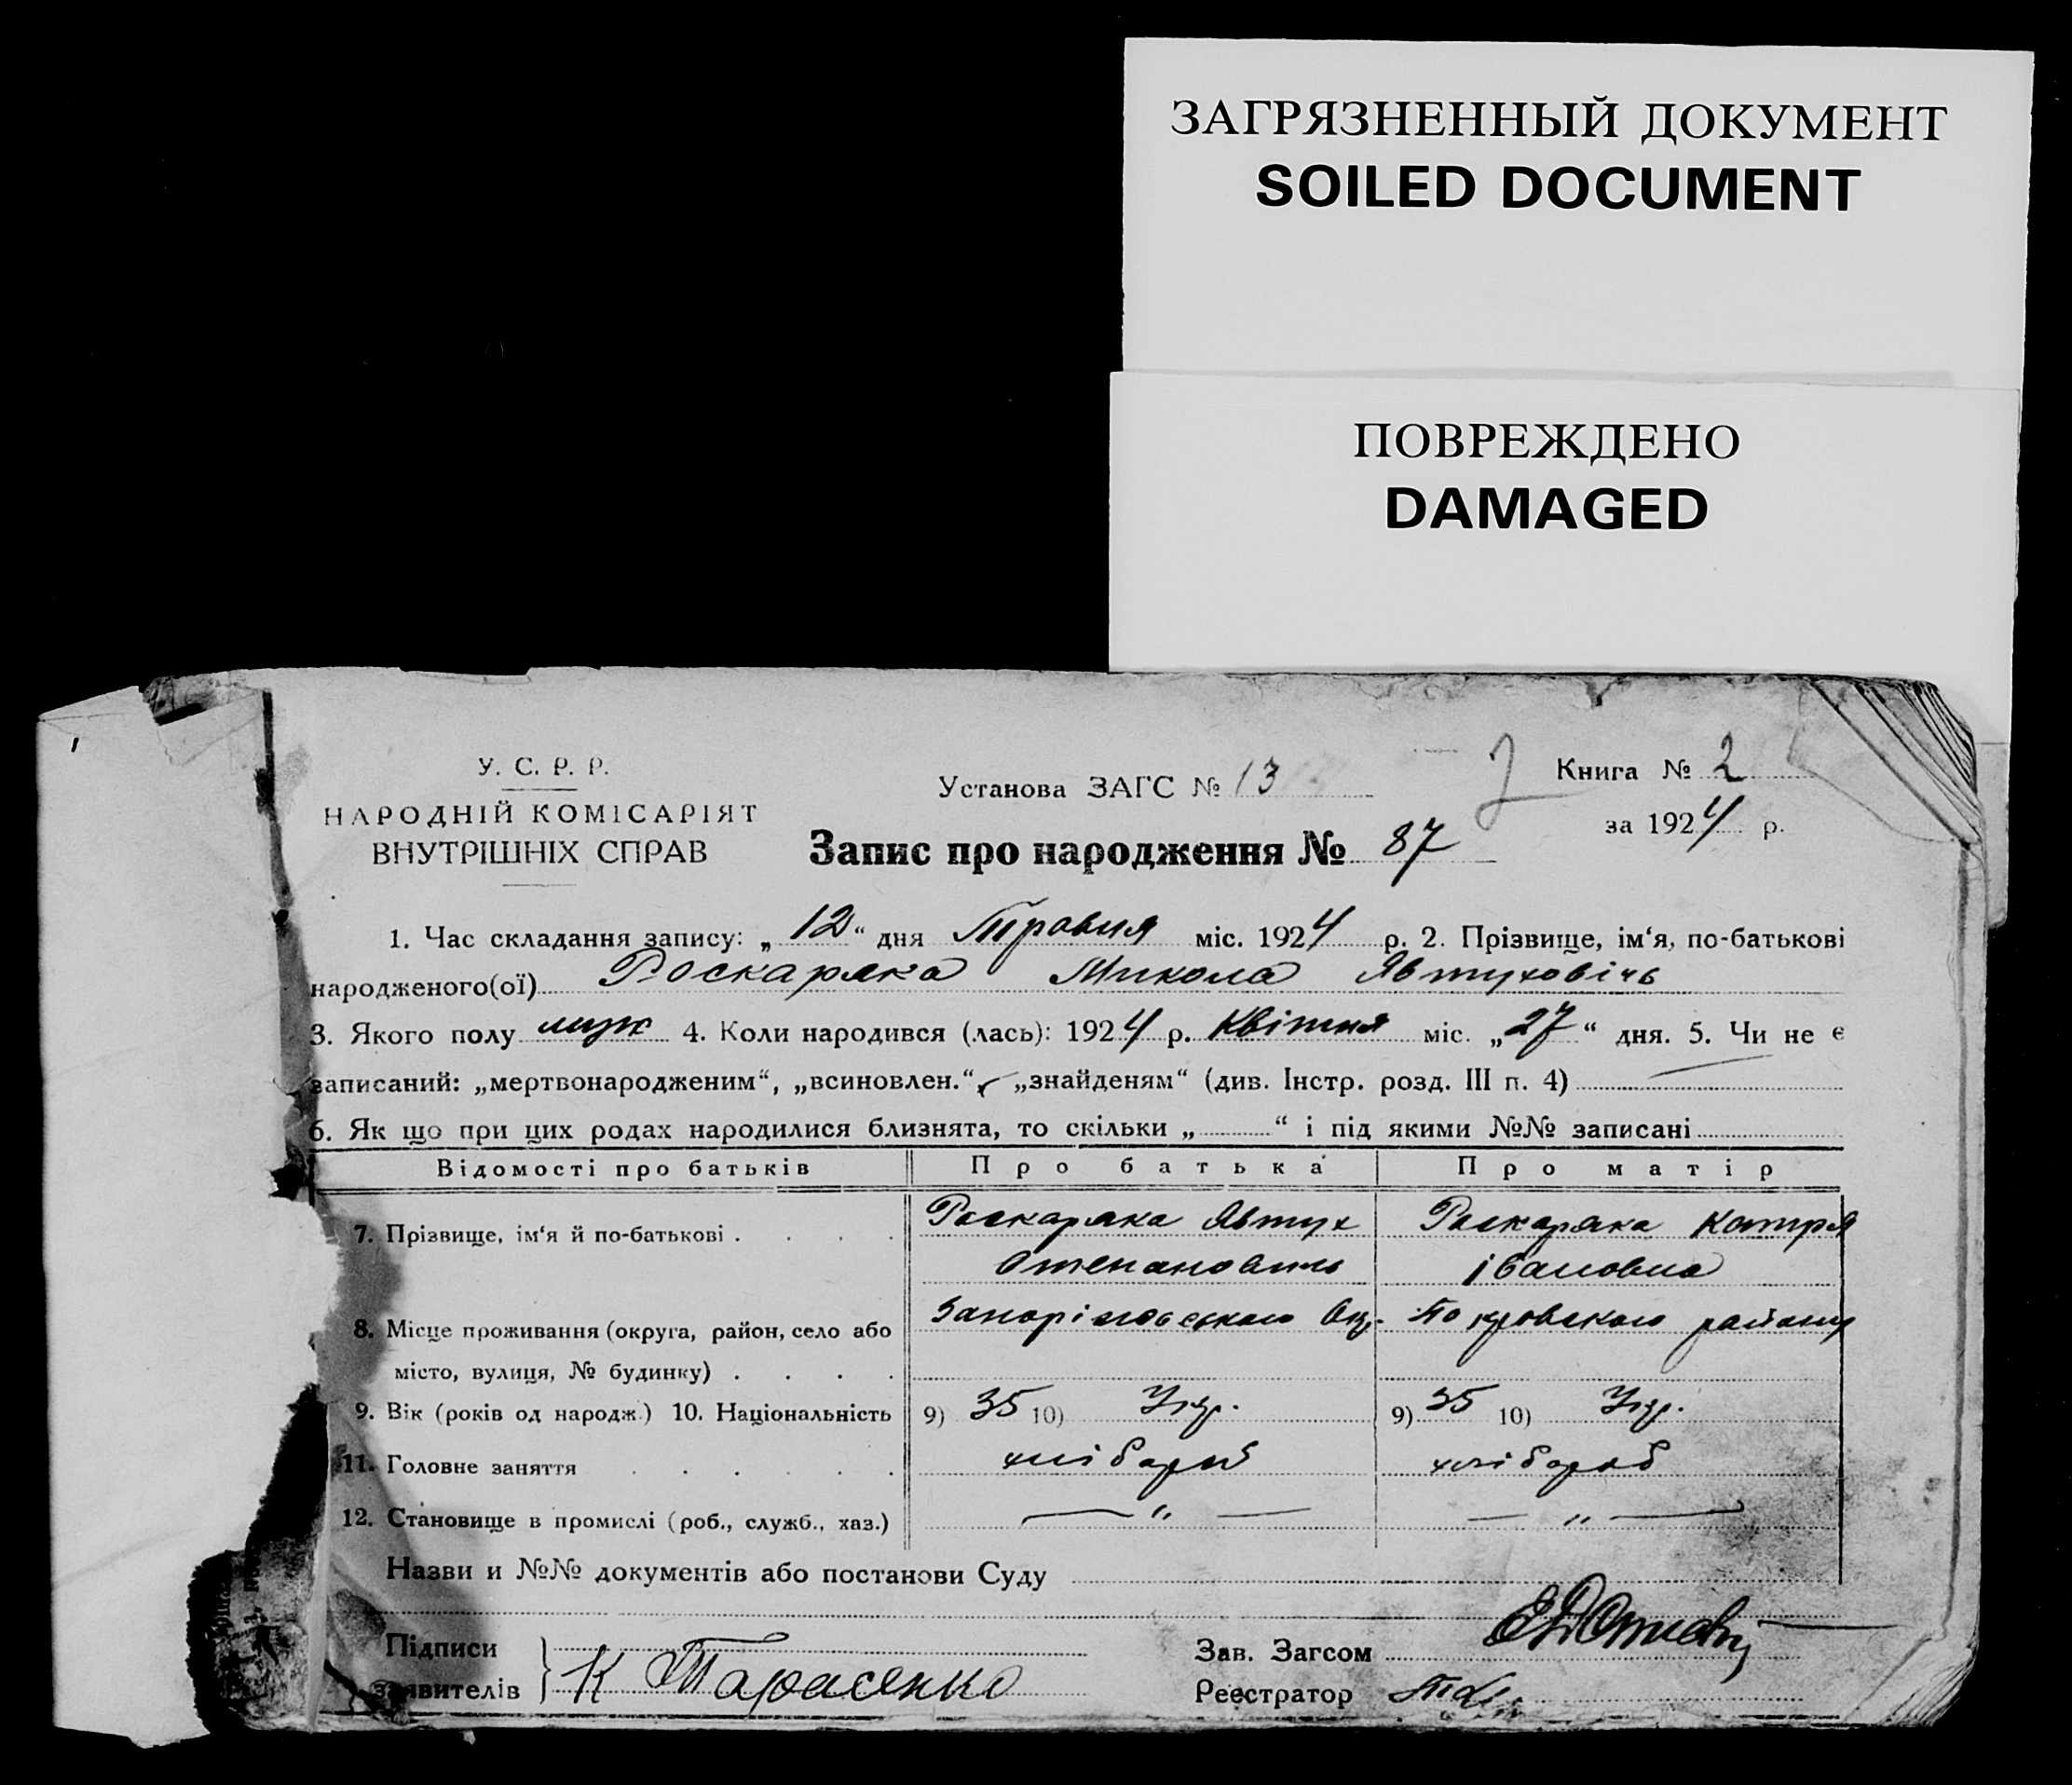 ЗАГРЯЗНЕННЫЙ ДОКУМЕНТ
SOILED DOCUMENT
ПОВРЕЖДЕНО
DAMAGED
У. С. Р. Р.
НАРОДНІЙ КОМІСАРІЯТ
ВНУТРІШНІХ СПРАВ
Установа ЗАГС № 13
Книга № 2
за 1924 р.
Запис про народження № 87
1. Час складання запису: „12“ дня Травня міс. 1924 р. 2. Прізвище, ім‘я, по-батькові
народженого(ої) Роскаряка Микола Явтуховічь
3. Якого полу муж 4. Коли народився (лась): 1924 р. Квітня міс. „27“ дня. 5. Чи не є
записаний: „мертвонародженим“, „всиновлен.“, „знайденям“ (див. Інстр. розд. III п. 4)
6. Як що при цих родах народилися близнята, то скільки „ “ і під якими №№ записані
Відомості про батьків Про батька Про матір
7. Прізвище, ім‘я й по-батькові . . . . Роскаряка Явтух Роскаряка Катря
Степановичь Івановна
8. Місце проживання (округа, район, село або Запоріжського Окр. Покровского району
місто, вулиця, № будинку) . . . .
9. Вік (років од народж.) 10. Національність 9) 35 10) Укр. 9) 35 10) Укр.
11. Головне заняття . . . . . . хлібороб хлібороб
12. Становище в промислі (роб., служб., хаз.) — „ — — „ —
Назви и №№ документів або постанови Суду
Підписи
заявителів } К Тарасенко
Зав. Загсом
Реєстратор